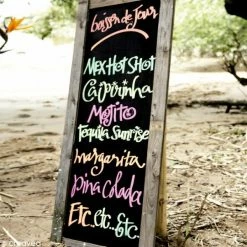 boisson de jour
MEX HOT SHOT
Caipirinha
Mojito
Tequila Sunrise
margarita
Pina Colada
Etc..etc..Etc..
© creavea